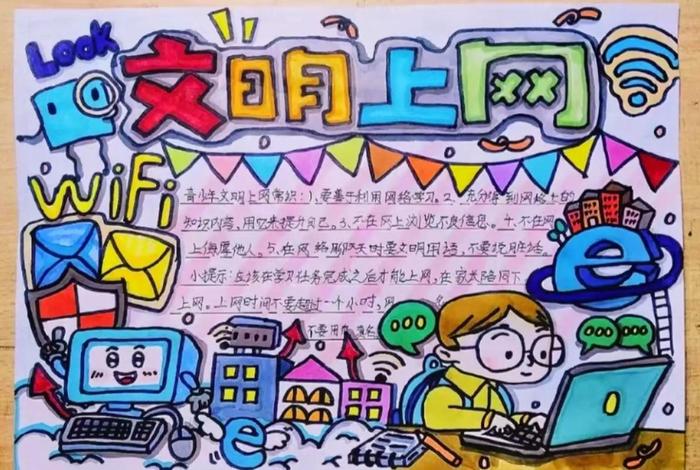 Look
文明上网
WiFi
青少年文明上网常识：1、要善于利用网络学习。2、充分
知识内容，用以来提升自己。3、不在网上浏览不良信息。4、不在网
上侮辱他人。5、在网络聊天时要文明用语，不要说脏话。
小提示：应该在学习任务完成之后才能上网，在家长陪同下
上网。上网时间不要超过一个小时，
不要用真名
e
e